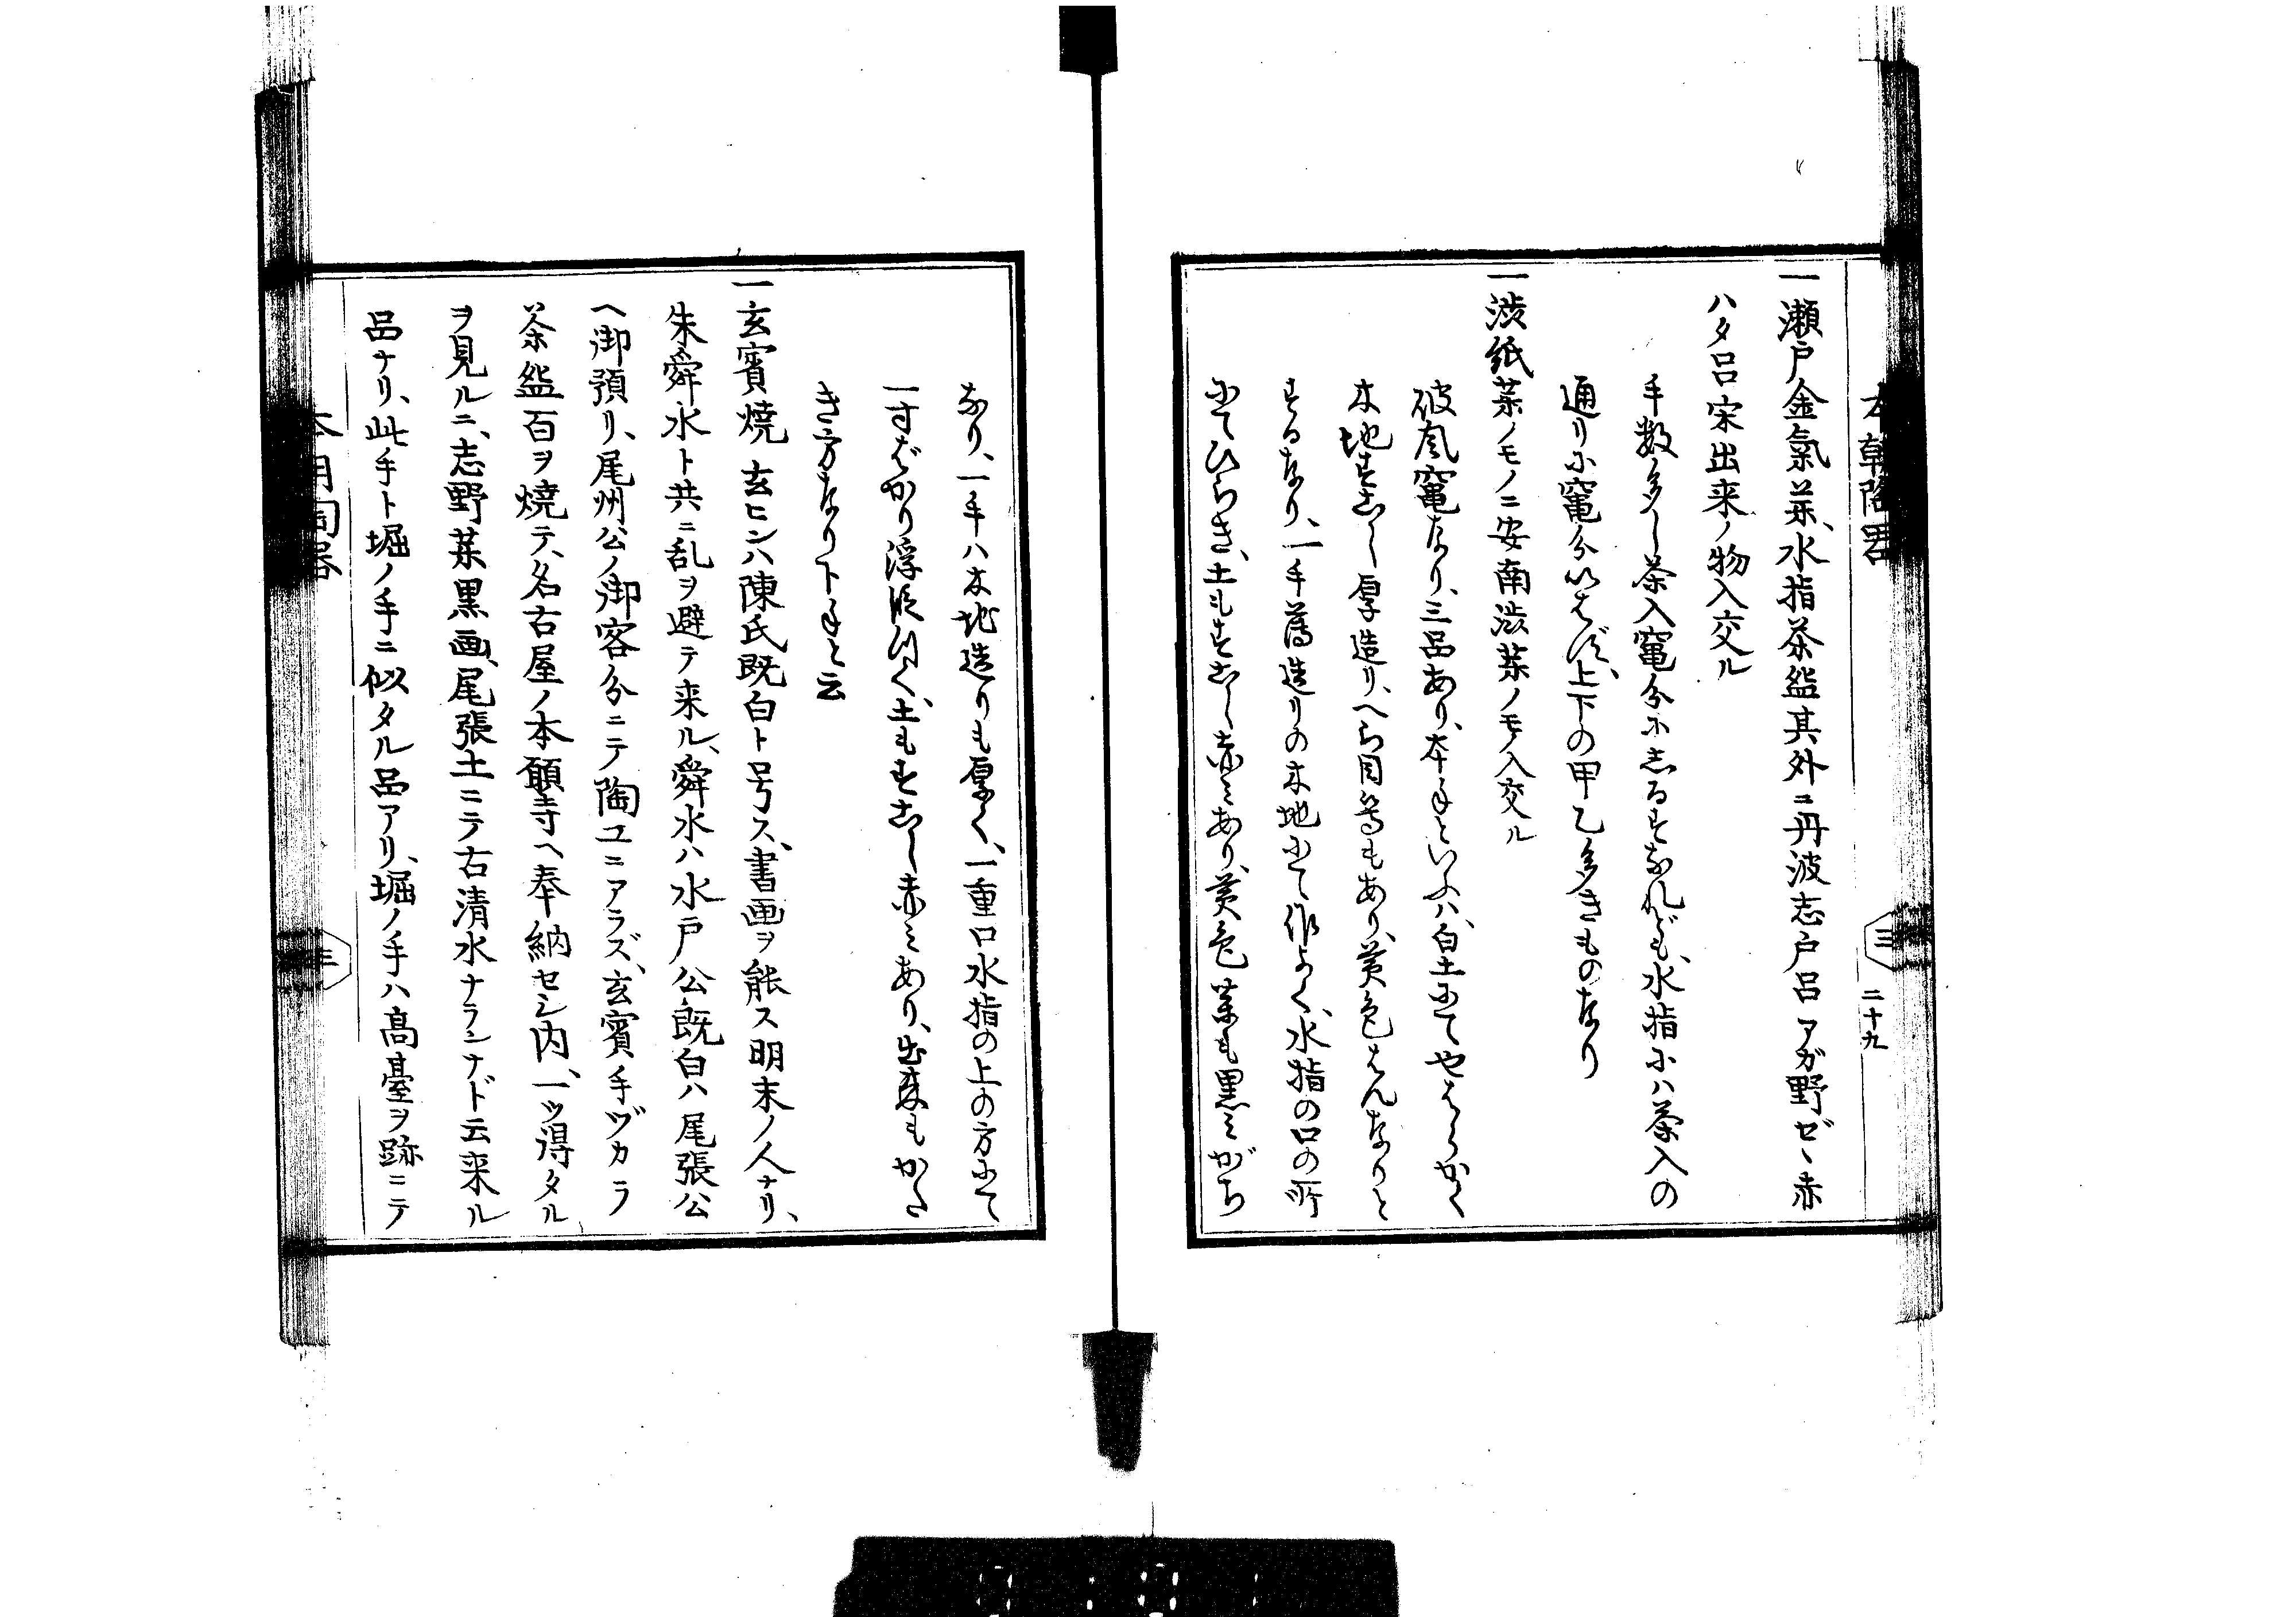 一瀬戸金氣薬、水指茶盌其外ニ丹波志戸呂アガ野ゼヾ赤
ハタ呂宋出来ノ物入交ル
手数多し茶入竃分に志るすなれども、水指にハ茶入の
通りに竃分いはず、上下の甲乙多きものなり
一渋紙薬ノモノニ安南渋薬ノモノ入交ル
破風竃なり、三品あり、本手といふハ、白土にてやはらかく
木地すこし厚造り、へら目等もあり、黄色はんなりと
するなり、一手薄造りの木地にて作よく、水指の口の所
にてひらき、土もすこし赤ミあり、黄色薬も黒ミがち
なり、一手ハ木地造りも厚く、一重口水指の上の方にて
一寸ばかり浮泛ひく、土もすこし赤ミあり、出来もかた
き方なり下手と云
一玄賓焼 玄ヒンハ陳氏既白ト号ス、書画ヲ能ス明末ノ人ナリ、
朱舜水ト共ニ乱ヲ避テ来ル、舜水ハ水戸公既白ハ尾張公
ヘ御預リ、尾州公ノ御客分ニテ陶工ニアラズ、玄賓手ヅカラ
茶盌百ヲ焼テ、名古屋ノ本願寺ヘ奉納セシ内、一ツ得タル
ヲ見ルニ、志野薬黒画、尾張土ニテ古清水ナランナド云来ル
品ナリ、此手ト堀ノ手ニ似タル品アリ、堀ノ手ハ高臺ヲ跡ニテ
本朝陶器
三
二十九